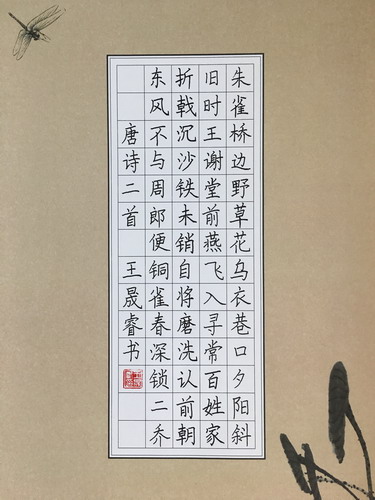 朱雀桥边野草花乌衣巷口夕阳斜
旧时王谢堂前燕飞入寻常百姓家
折戟沉沙铁未销自将磨洗认前朝
东风不与周郎便铜雀春深锁二乔
唐诗二首 王晟睿书